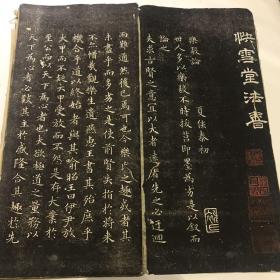 快雪堂法書
樂毅論 夏侯泰初
世人多以樂毅不時拔莒即墨為劣是以叙而
論之
夫求古賢之意宜以大者遠者先之必迂迴
而難通然後已焉可也今樂氏之趣或者其
未盡乎而多劣之是使前賢失指於將來
不亦惜哉觀樂生遺燕惠王書其殆庶乎
機合乎道以終始者與其喻昭王曰伊尹放
大甲而不疑大甲受放而不怨是存大業於
至公而以天下為心者也夫欲極道之量務以
天下為心者必致其主於盛隆合其趣於先